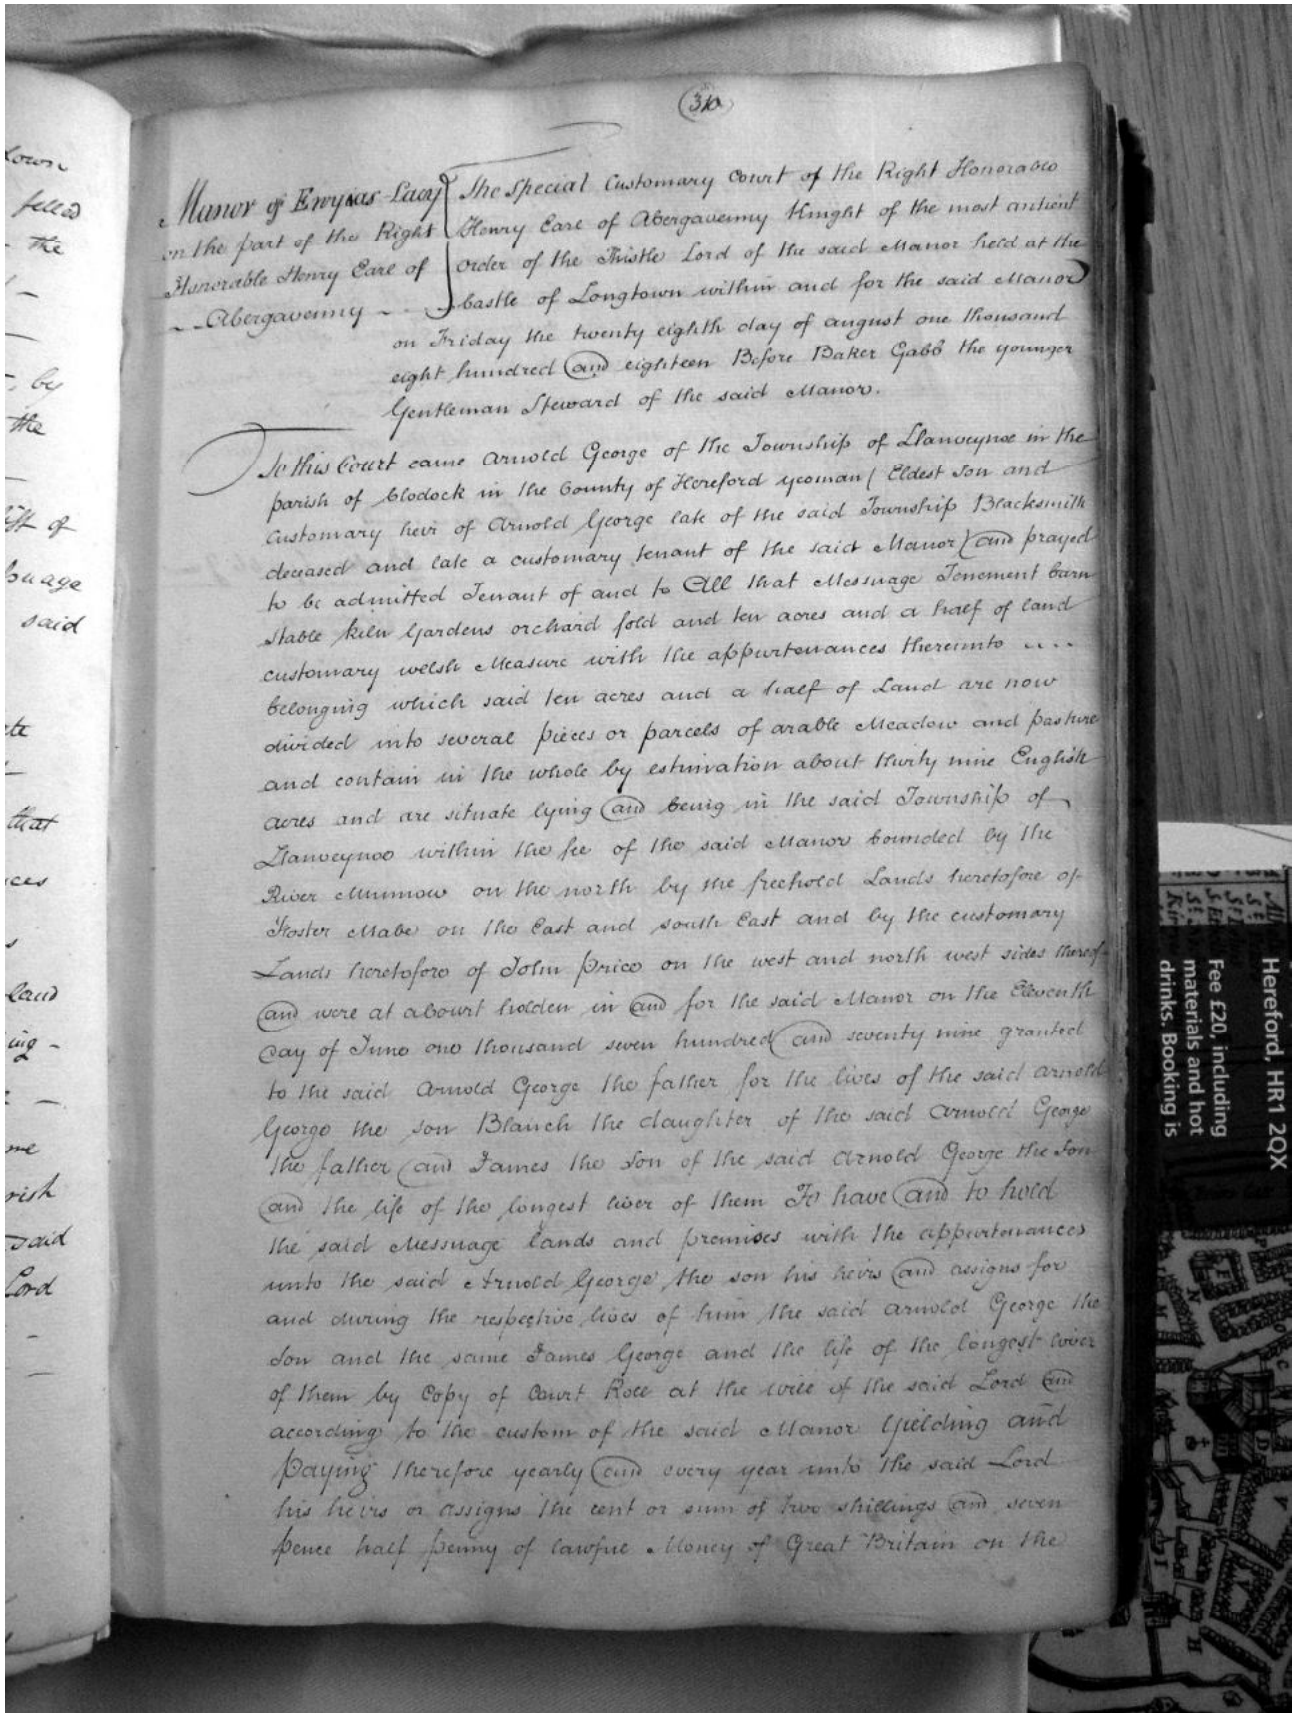 310
Manor of Ewyas-Lacy
on the part of the Right
Honorable Henry Earl of
Abergavenny
The Special Customary Court of the Right Honorable
Henry Earl of Abergavenny Knight of the most antient
order of the Thistle Lord of the said Manor held at the
Castle of Longtown within and for the said Manor
on Friday the twenty eighth day of august one thousand
eight hundred and eighteen Before Baker Gabb the younger
Gentleman Steward of the said Manor.
To this Court came Arnold George of the Township of Llanveynoe in the
parish of Clodock in the County of Hereford yeoman (Eldest Son and
Customary heir of Arnold George late of the said Township Blacksmith
deceased and late a customary tenant of the said Manor) and prayed
to be admitted Tenant of and to All that Messuage Tenement barn
stable kiln Gardens orchard fold and ten acres and a half of land
customary welsh Measure with the appurtenances thereunto ....
belonging which said ten acres and a half of Land are now
divided into several pieces or parcels of arable Meadow and pasture
and contain in the whole by estimation about thirty nine English
acres and are situate lying and being in the said Township of
Llanveynoo within the fee of the said Manor bounded by the
River Munnow on the north by the freehold Lands heretofore of
Foster Mabe on the East and south East and by the customary
Lands heretofore of John Price on the west and north west sides thereof
and were at a Court holden in and for the said Manor on the Eleventh
day of June one thousand seven hundred and seventy nine granted
to the said Arnold George the father for the lives of the said Arnold
George the son Blanch the daughter of the said Arnold George
the father and James the Son of the said Arnold George the Son
and the life of the longest liver of them To have and to hold
the said Messuage lands and premises with the appurtenances
unto the said Arnold George the son his heirs and assigns for
and during the respective lives of him the said Arnold George the
Son and the same James George and the life of the longest liver
of them by Copy of Court Roll at the will of the said Lord and
according to the custom of the said Manor Yielding and
Paying therefore yearly and every year unto the said Lord
his heirs or assigns the rent or sum of two shillings and seven
pence half penny of lawful Money of Great Britain on the
town
felled
the
by
the
said
that
land
ing -
said
Lord
Hereford, HR1 2QX
Fee £20, including
materials and hot
drinks. Booking is